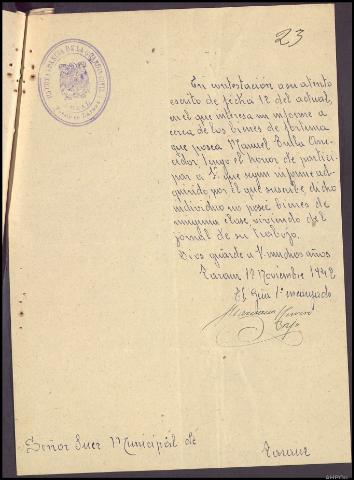 23
En contestación a su atento
escrito de fecha 12 del actual,
en el que interesa un informe a
cerca de los bienes de fortuna
que posea Manuel Tulla
tengo el honor de partici-
par a V. que segun informe ad-
quirido por el que suscribe, dicho
individuo no poseé bienes de
ninguna clase, viviendo del
jornal de su trabajo.
Dios guarde a V. muchos años
Noviembre 1942
El Guia 1º encargado
Señor Juez Municipál de